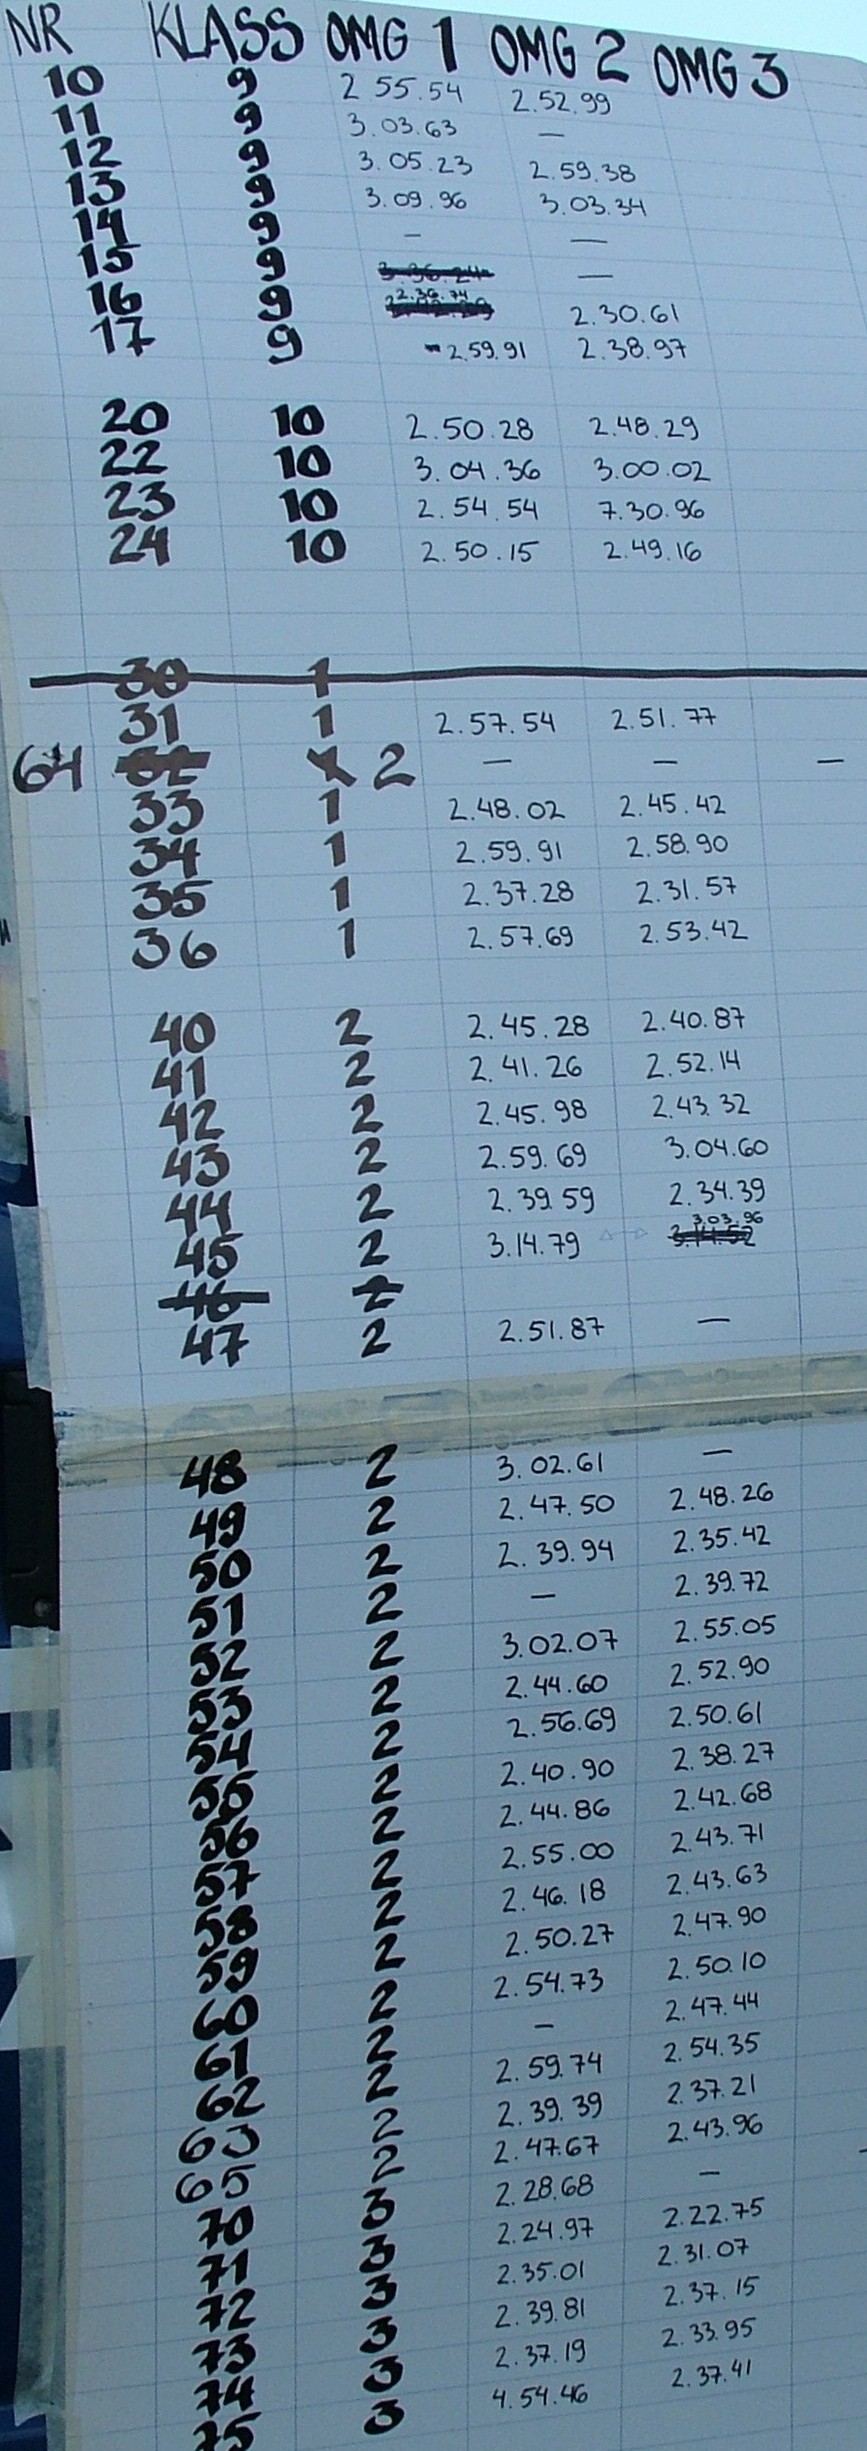 NR KLASS OMG 1 OMG 2 OMG 3
10 9 2 55.54 2.52.99
11 9 3.03.63 —
12 9 3.05.23 2.59.38
13 9 3.09.96 3.03.34
14 9 — —
15 9 —
16 9 2.36.74 2.30.61
17 9 -2.59.91 2.38.97
20 10 2.50.28 2.48.29
22 10 3.04.36 3.00.02
23 10 2.54.54 7.30.96
24 10 2.50.15 2.49.16
30 1
31 1 2.57.54 2.51.77
64 2 — — —
33 1 2.48.02 2.45.42
34 1 2.59.91 2.58.90
35 1 2.37.28 2.31.57
36 1 2.57.69 2.53.42
40 2 2.45.28 2.40.87
41 2 2.41.26 2.52.14
42 2 2.45.98 2.43.32
43 2 2.59.69 3.04.60
44 2 2.39.59 2.34.39
45 2 3.14.79 3.03.96
46 2
47 2 2.51.87 —
48 2 3.02.61 —
49 2 2.47.50 2.48.26
50 2 2.39.94 2.35.42
51 2 — 2.39.72
52 2 3.02.07 2.55.05
53 2 2.44.60 2.52.90
54 2 2.56.69 2.50.61
55 2 2.40.90 2.38.27
56 2 2.44.86 2.42.68
57 2 2.55.00 2.43.71
58 2 2.46.18 2.43.63
59 2 2.50.27 2.47.90
60 2 2.54.73 2.50.10
61 2 — 2.47.44
62 2 2.59.74 2.54.35
63 2 2.39.39 2.37.21
65 2 2.47.67 2.43.96
70 3 2.28.68 —
71 3 2.24.97 2.22.75
72 3 2.35.01 2.31.07
73 3 2.39.81 2.37.15
74 3 2.37.19 2.33.95
75 3 4.54.46 2.37.41